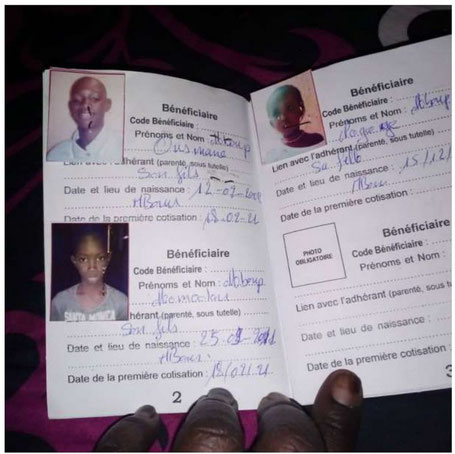 Bénéficiaire
Code Bénéficiaire :
Prénoms et Nom : Mboup
Ousmane
Lien avec l'adhérant (parenté, sous tutelle)
Son fils
Date et lieu de naissance : 12-07-
MBour
Date de la première cotisation : 18-02-21
Bénéficiaire
Code Bénéficiaire :
Prénoms et Nom : Mboup
hérant (parenté, sous tutelle)
Son fils
Date et lieu de naissance : 25
MBour
Date de la première cotisation : 18/02/21
2
SANTA MONICA
Bénéficiaire
Code Bénéficiaire :
Prénoms et Nom : Mboup
Lien avec l'adhérant (parenté, sous tutelle)
Sa fille
Date et lieu de naissance : 15/12/
MBour
Date de la première cotisation :
PHOTO
OBLIGATOIRE
Bénéficiaire
Code Bénéficiaire :
Prénoms et Nom :
Lien avec l'adhérant (parenté, sous
Date et lieu de naissance :
Date de la première cotisation :
3